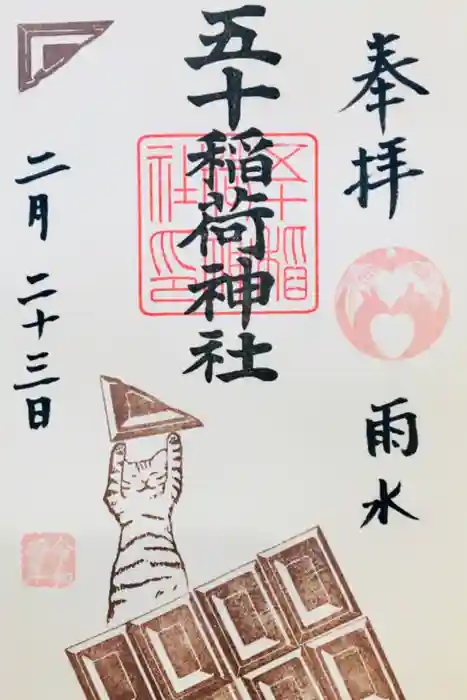 奉拝
雨水
五十稲荷神社
五十稲
二月二十三日